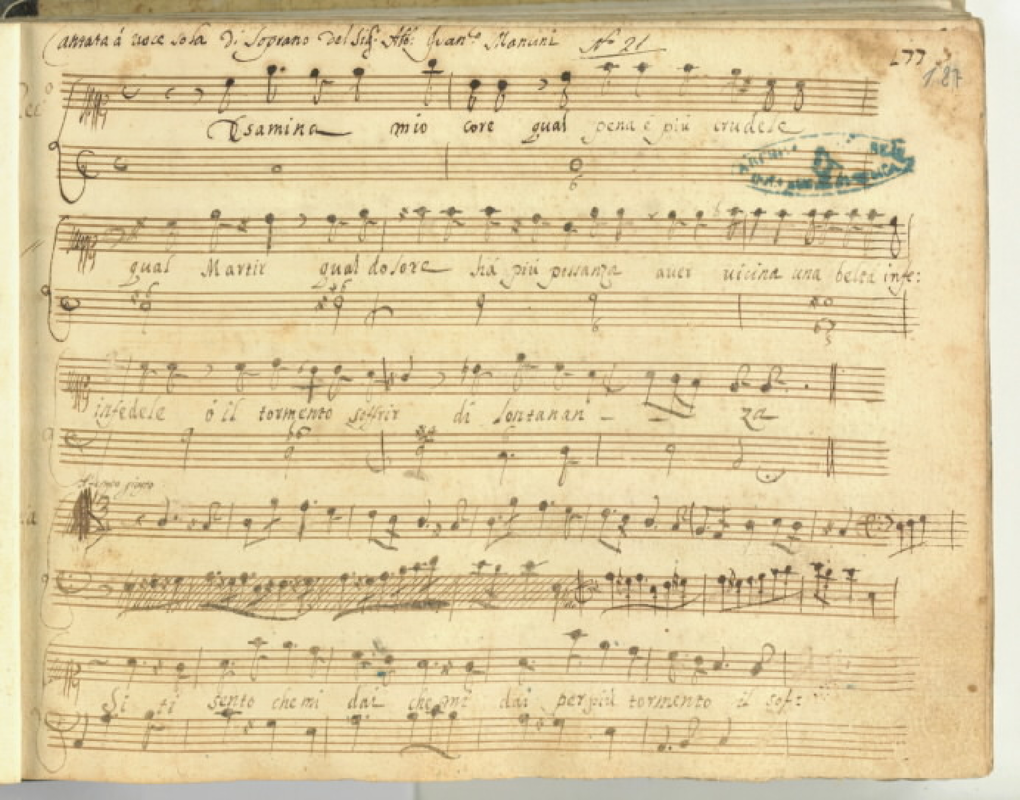 Cantata á voce sola Di Soprano Del Sig. Franc.º Mancini Nº 21
177
187
Rec.º
Esamina mio core qual pena è più crudele
qual Martir qual dolore há più possanza aver vicina una beltà infe:
infedele ó il tormento soffrir di lontanan - za
Si ti sento che mi dai che mi dai per più tormento il sof: